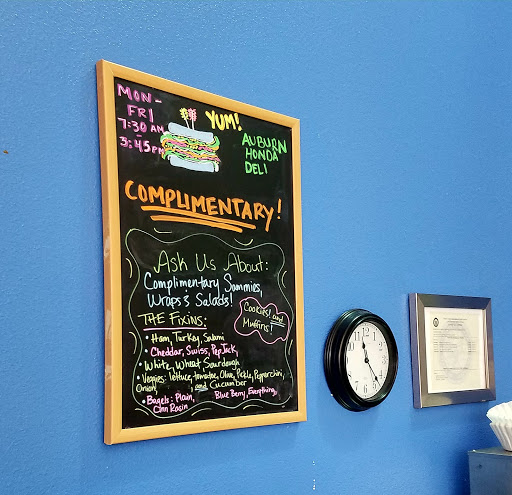 MON-
FRI
7:30 AM
-
3:45 PM
YUM!
AUBURN
HONDA
DELI
COMPLIMENTARY!
ASK US ABOUT:
Complimentary Sammies,
Wraps & Salads!
COOKIES! and
MUFFINS!
THE FIXINS:
• Ham, Turkey, Salami
• Cheddar, Swiss, PepJack,
• White, Wheat Sourdough
• Veggies: lettuce, tomatoe, Olive, Pickle, Pepperchini,
Onion, and Cucumber
• Bagels: Plain, Blue Berry, Everything,
Cinn Rasin